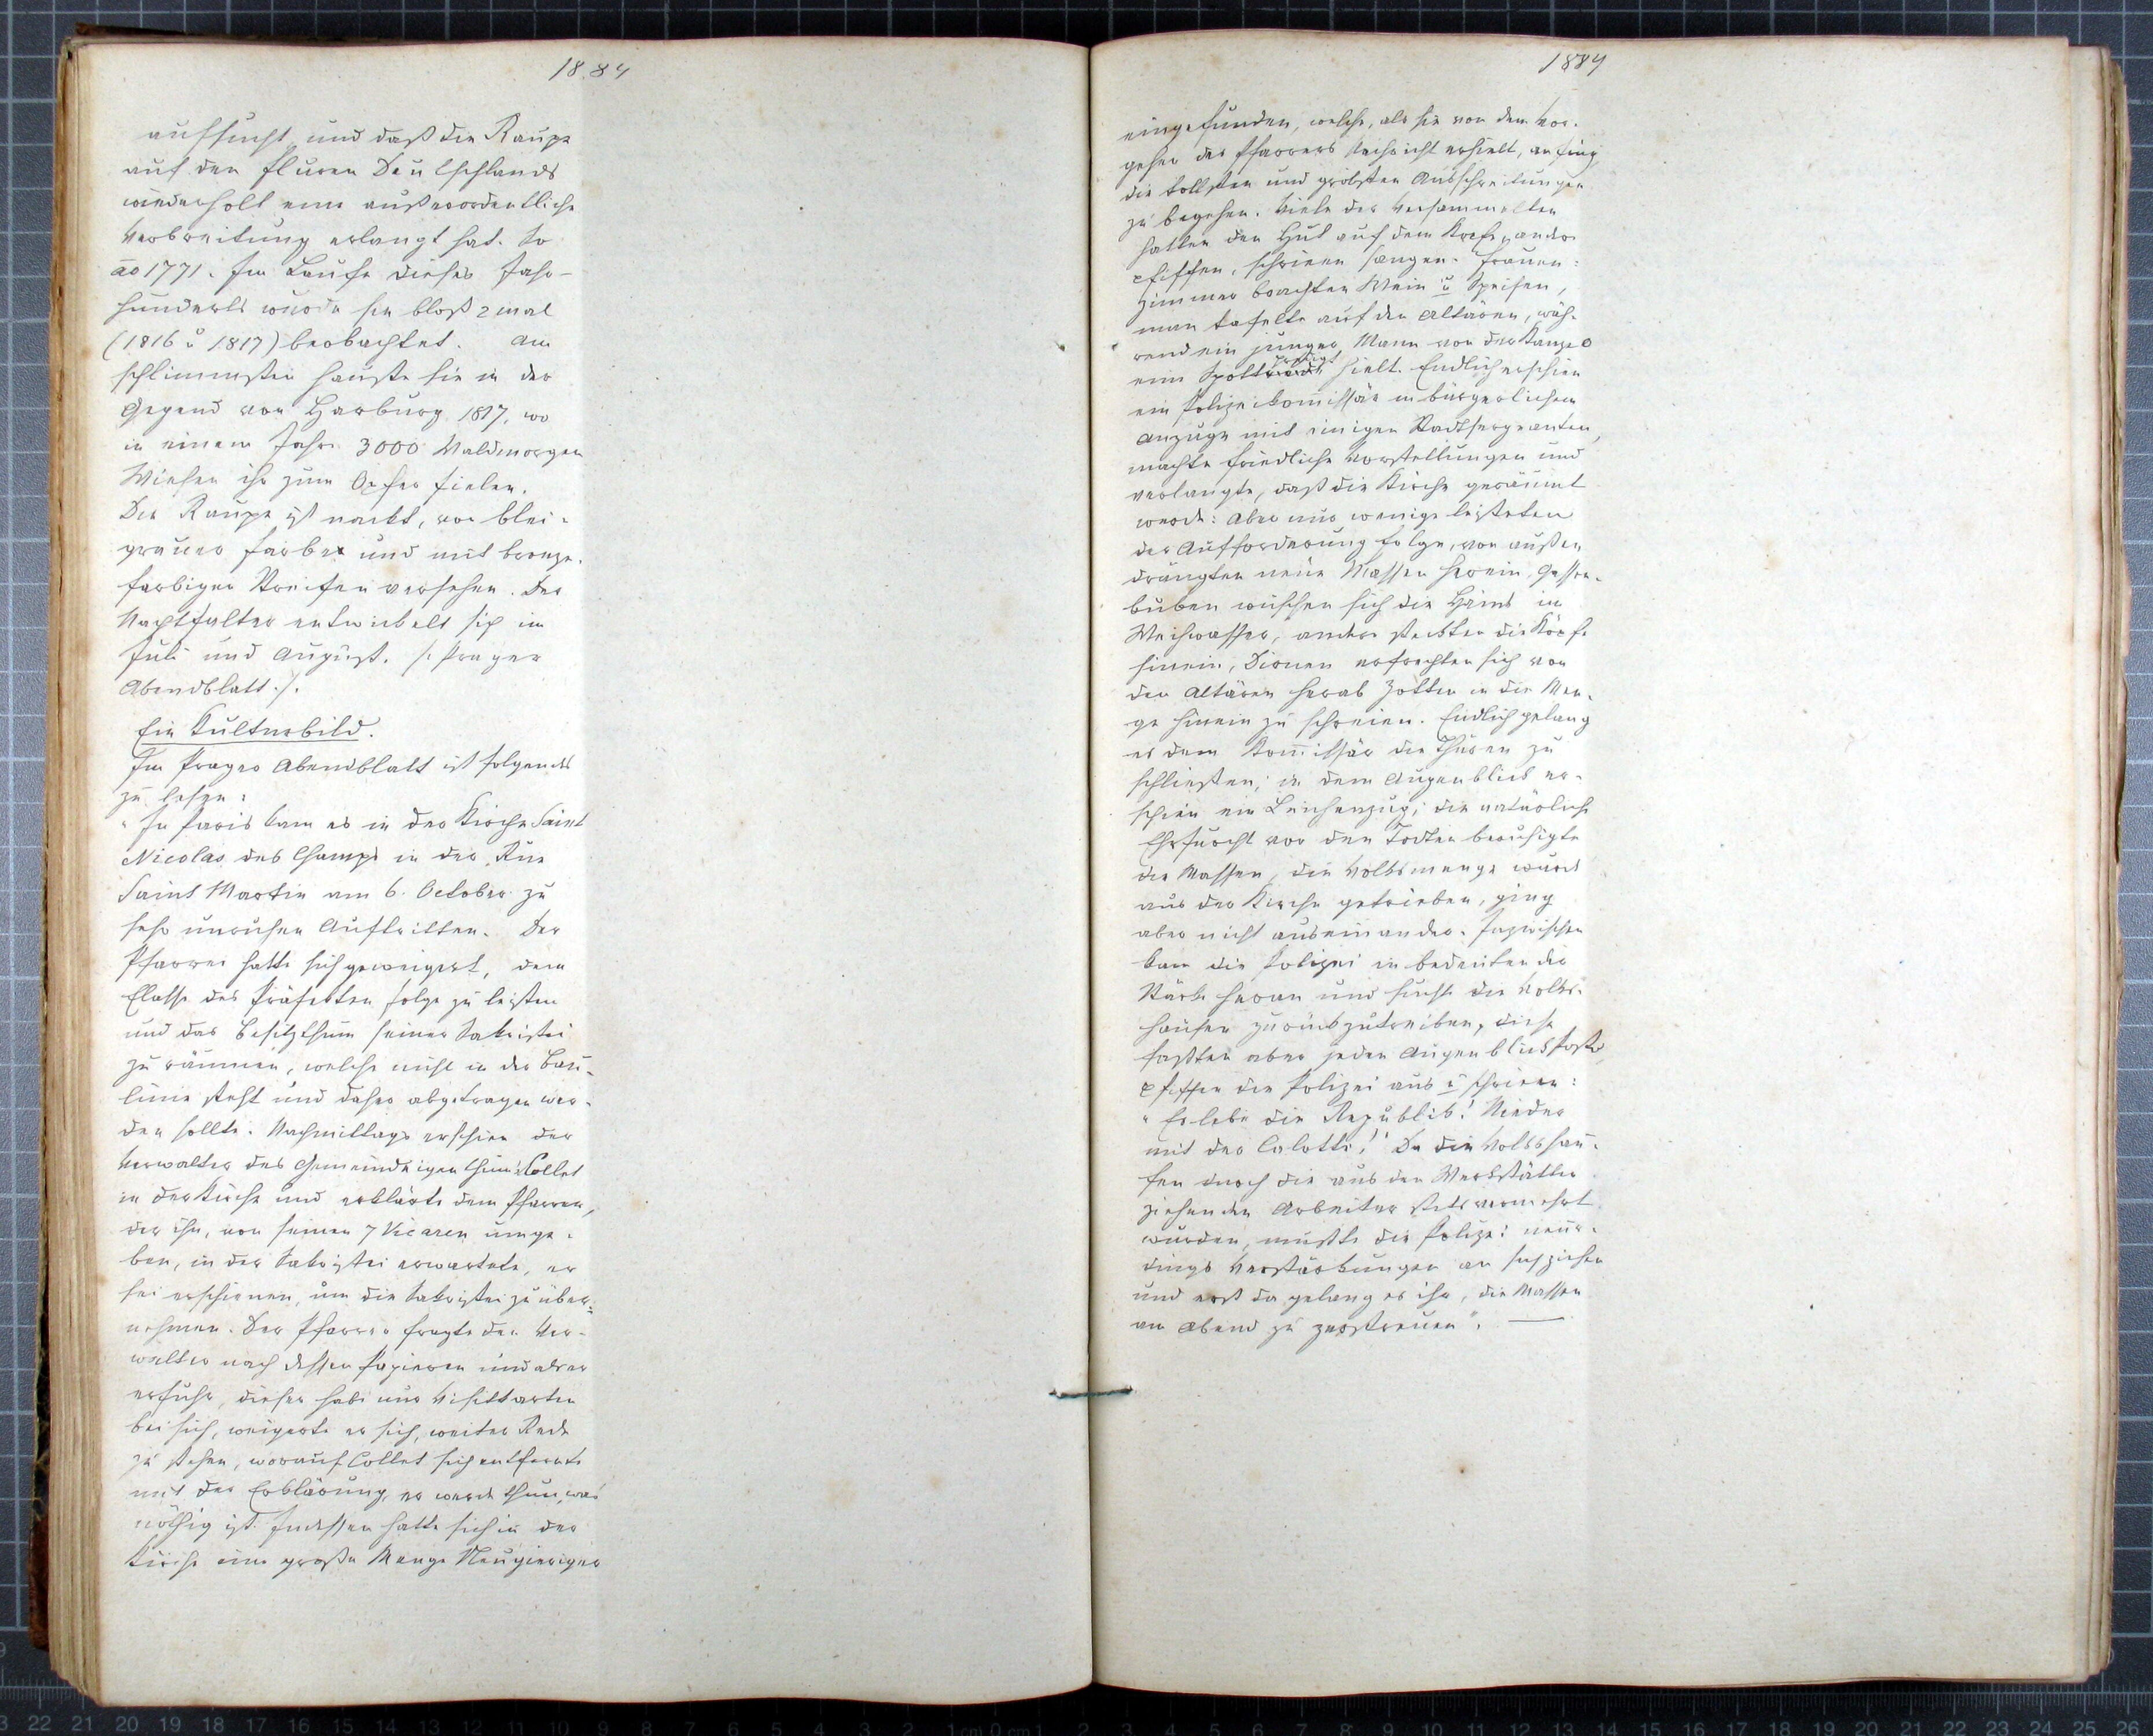 1884
aufsucht, und daß die Raupe
auf den Fluren Deutschlands
wiederholt eine außerordentliche
Verbreitung erlangt hat. So
ao 1771. Im Laufe dieses Jahr-
hunderts wurde sie bloß 2 mal
(1816 u 1817) beobachtet. Am
schlimmsten hauste sie in der
Gegend von Harburg 1817, wo
in einem Jahr 3000 Waldmorgen
Wiesen ihr zum Opfer fielen.
Die Raupe ist nackt, von blei-
grauer Farbe und mit bronze-
farbigen Streifen versehen. Der
Nachtfalter entwickelt sich im
Juli und August. /: Prager
Abendblatt :/.
Ein Kulturbild.
Im Prager Abendblatt ist folgendes
zu lesen:
"In Paris kam es in der Kirche Saint
Nicolas des Champs in der Rue
Saint Martin am 6. October zu
sehr unruhen Auftritten. Der
Pfarrer hatte sich geweigert, dem
Erlasse des Präfekten Folge zu leisten
und das Besitzthum seiner Sakristei
zu räumen, welche nicht in der Bau-
linie steht und daher abgetragen wer-
den sollte. Nachmittags erschien der
Verwalter des Gemeindeigenthums Collet
in der Kirche und erklärte dem Pfarrer,
der ihn, von seinen 7 Vicaren umge-
ben, in der Sakristei erwartete, er
sei erschienen, um die Sakristei zu über-
nehmen. Der Pfarrer fragte den Ver-
walter nach dessen Papieren und als er
erfuhr, dieser habe nur Visitkarten
bei sich, weigerte er sich, weiter Rede
zu stehen, worauf Collet sich entfernte
mit der Erklärung, er werde thun, was
nöthig ist. Indessen hatte sich in der
Kirche eine große Menge Neugieriger
1884
eingefunden, welche, als sie von dem Vor-
gehen des Pfarrers Nachricht erhielt, anfing
die tollsten und grobsten Ausschreitungen
zu begehen. Viele der Versammelten
hatten den Hut auf dem Kopfe, andre
pfiffen, schrieen sangen. Frauen-
zimmer brachten Wein u Speisen,
man tafelte auf den Altären, wäh-
rend ein junger Mann von der Kanzel
eine Spottpredigt hielt. Endlich erschien
ein Polizeikommissär in bürgerlichem
Anzuge mit einigen Stadtsergeanten,
machte friedliche Vorstellungen und
verlangte, daß die Kirche geräumt
werde: Aber nur wenige leisteten
der Aufforderung Folge, von außen
drängten neue Massen herein, Gassen-
buben wuschen sich die Hände im
Weihwasser, andre steckten die Köpfe
hinein, Dirnen erfrechten sich von
den Altären herab Zotten in die Men-
ge hinein zu schreien. Endlich gelang
es dem Kommissär die Thüren zu
schließen; in dem Augenblick er-
schien ein Leichenzug; die natürliche
Ehrfurcht vor den Todten beruhigte
die Massen, die Volksmenge wurde
aus der Kirche getrieben, ging
aber nicht auseinander. Inzwischen
kam die Polizei in bedeutender
Stärke heran und suchte die Volks-
haufen zurückzutreiben, diese
faßten aber jeden Augenblick Posto
pfiffen die Polizei aus u schrieen:
"Es lebe die Republik! Nieder
mit der Calotte!" Da die Volkshau-
fen durch die aus den Werkstätten
ziehenden Arbeiter stets vermehrt
wurden, mußte die Polizei neuer-
dings Verstärkungen an sich ziehen
und erst da gelang es ihr, die Massen
am Abend zu zerstreuen". —